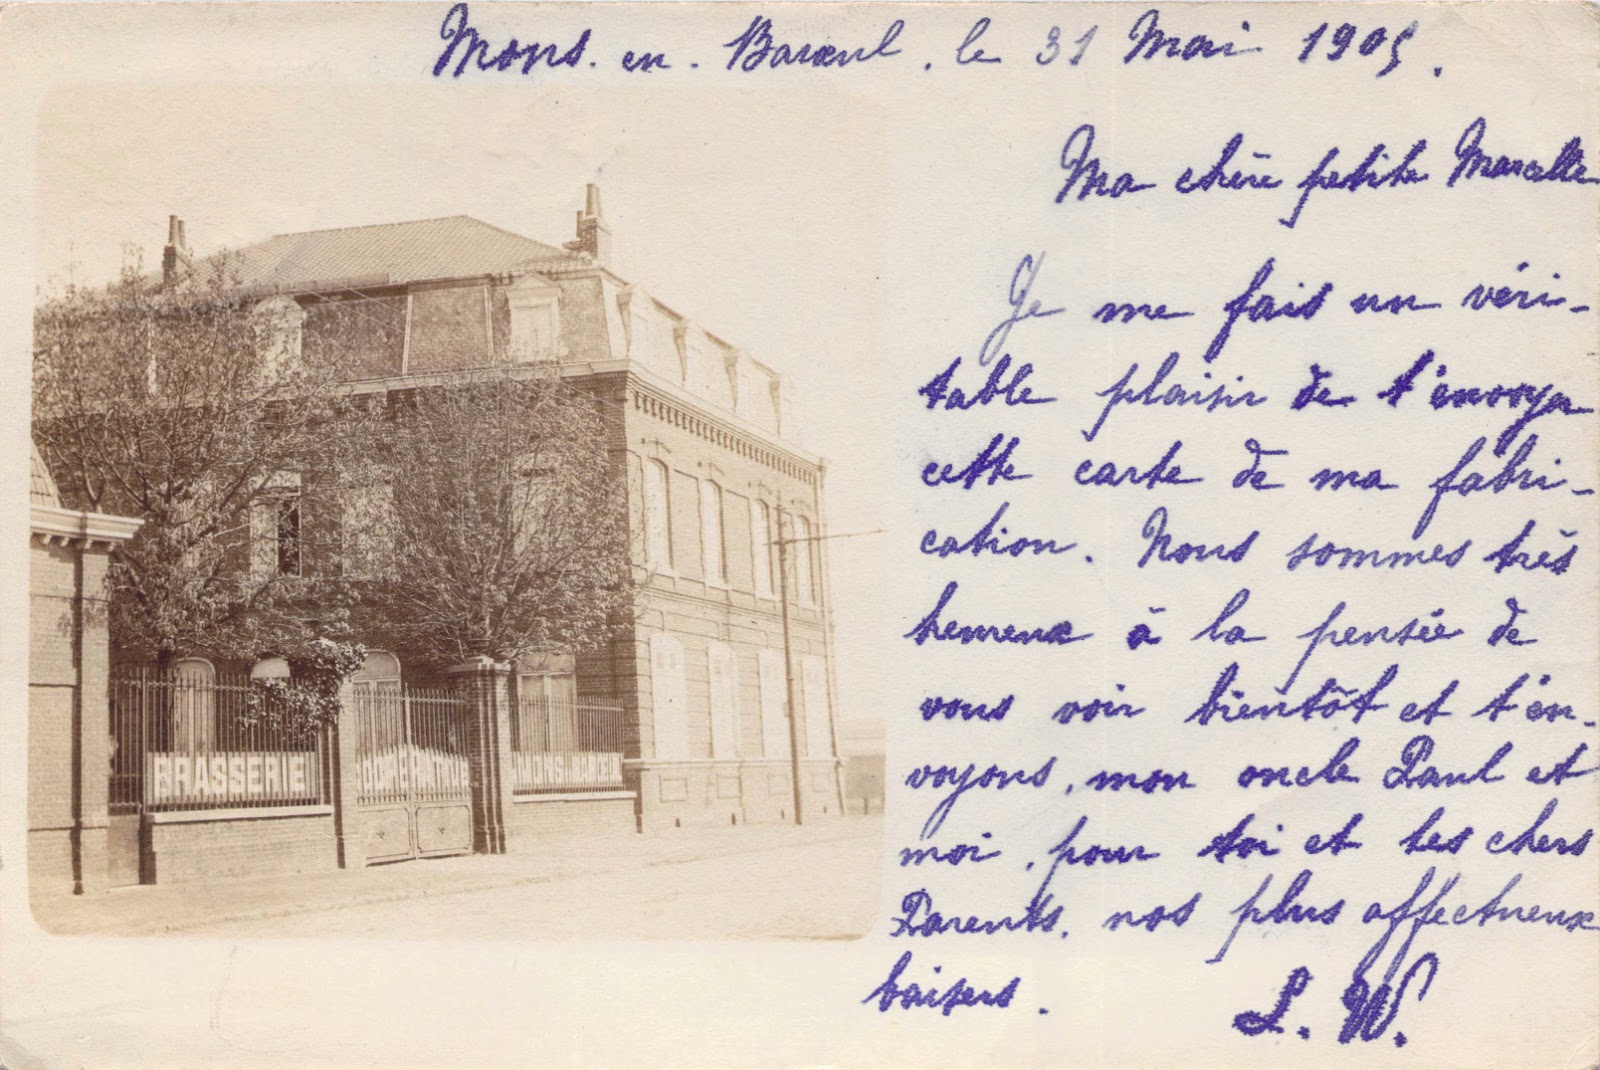 Mons. en. Baroeul, le 31 Mai 1905.
Ma chère petite Marcelle
Je me fais un véri-
table plaisir de t'envoyer
cette carte de ma fabri-
cation. Nous sommes très
heureux à la pensée de
vous voir bientôt et t'en-
voyons, mon oncle Paul et
moi, pour toi et tes chers
Parents, nos plus affectueux
baisers.
L. W.
BRASSERIE